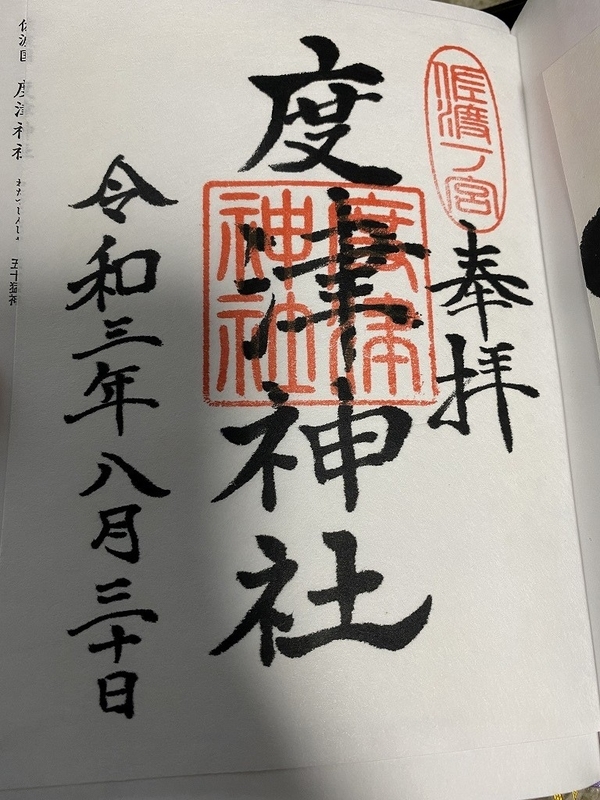 佐渡一宮
奉拝
度津神社
度津神社
令和三年八月三十日
佐渡国 度津神社